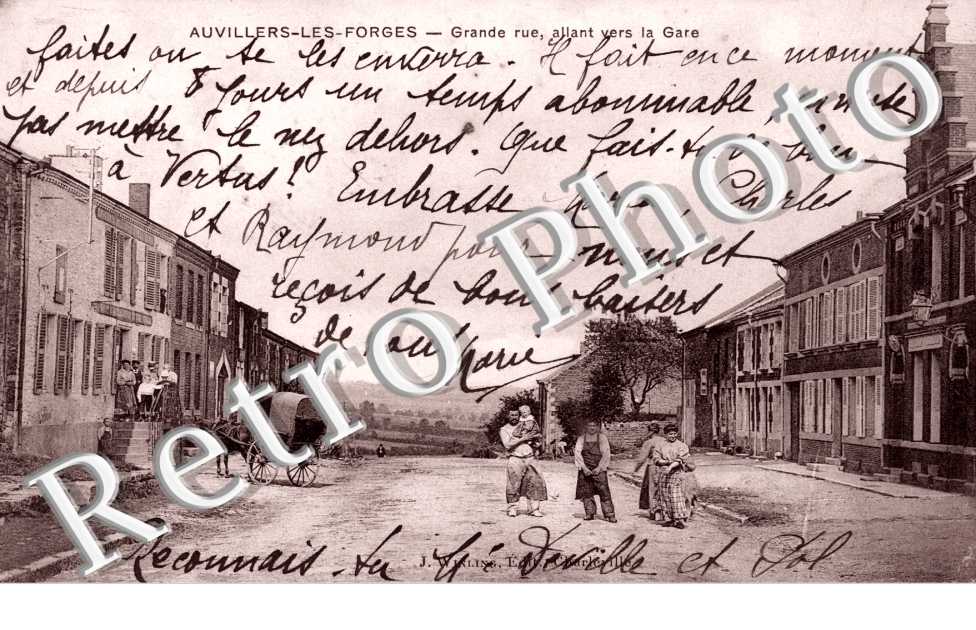 AUVILLERS-LES-FORGES — Grande rue, allant vers la Gare
faites on te les enverra. Il fait en ce moment
et depuis 8 jours un temps abominable,
pas mettre le nez dehors. Que fais-tu de bon
à Vertus! Embrasse Charles
et Raymond pour nous et
reçois de bons baisers
de Marie
Retro Photo Retro Photo
Reconnais-tu Gé Doville et Pol
J. WINLING, Édit., Charleville